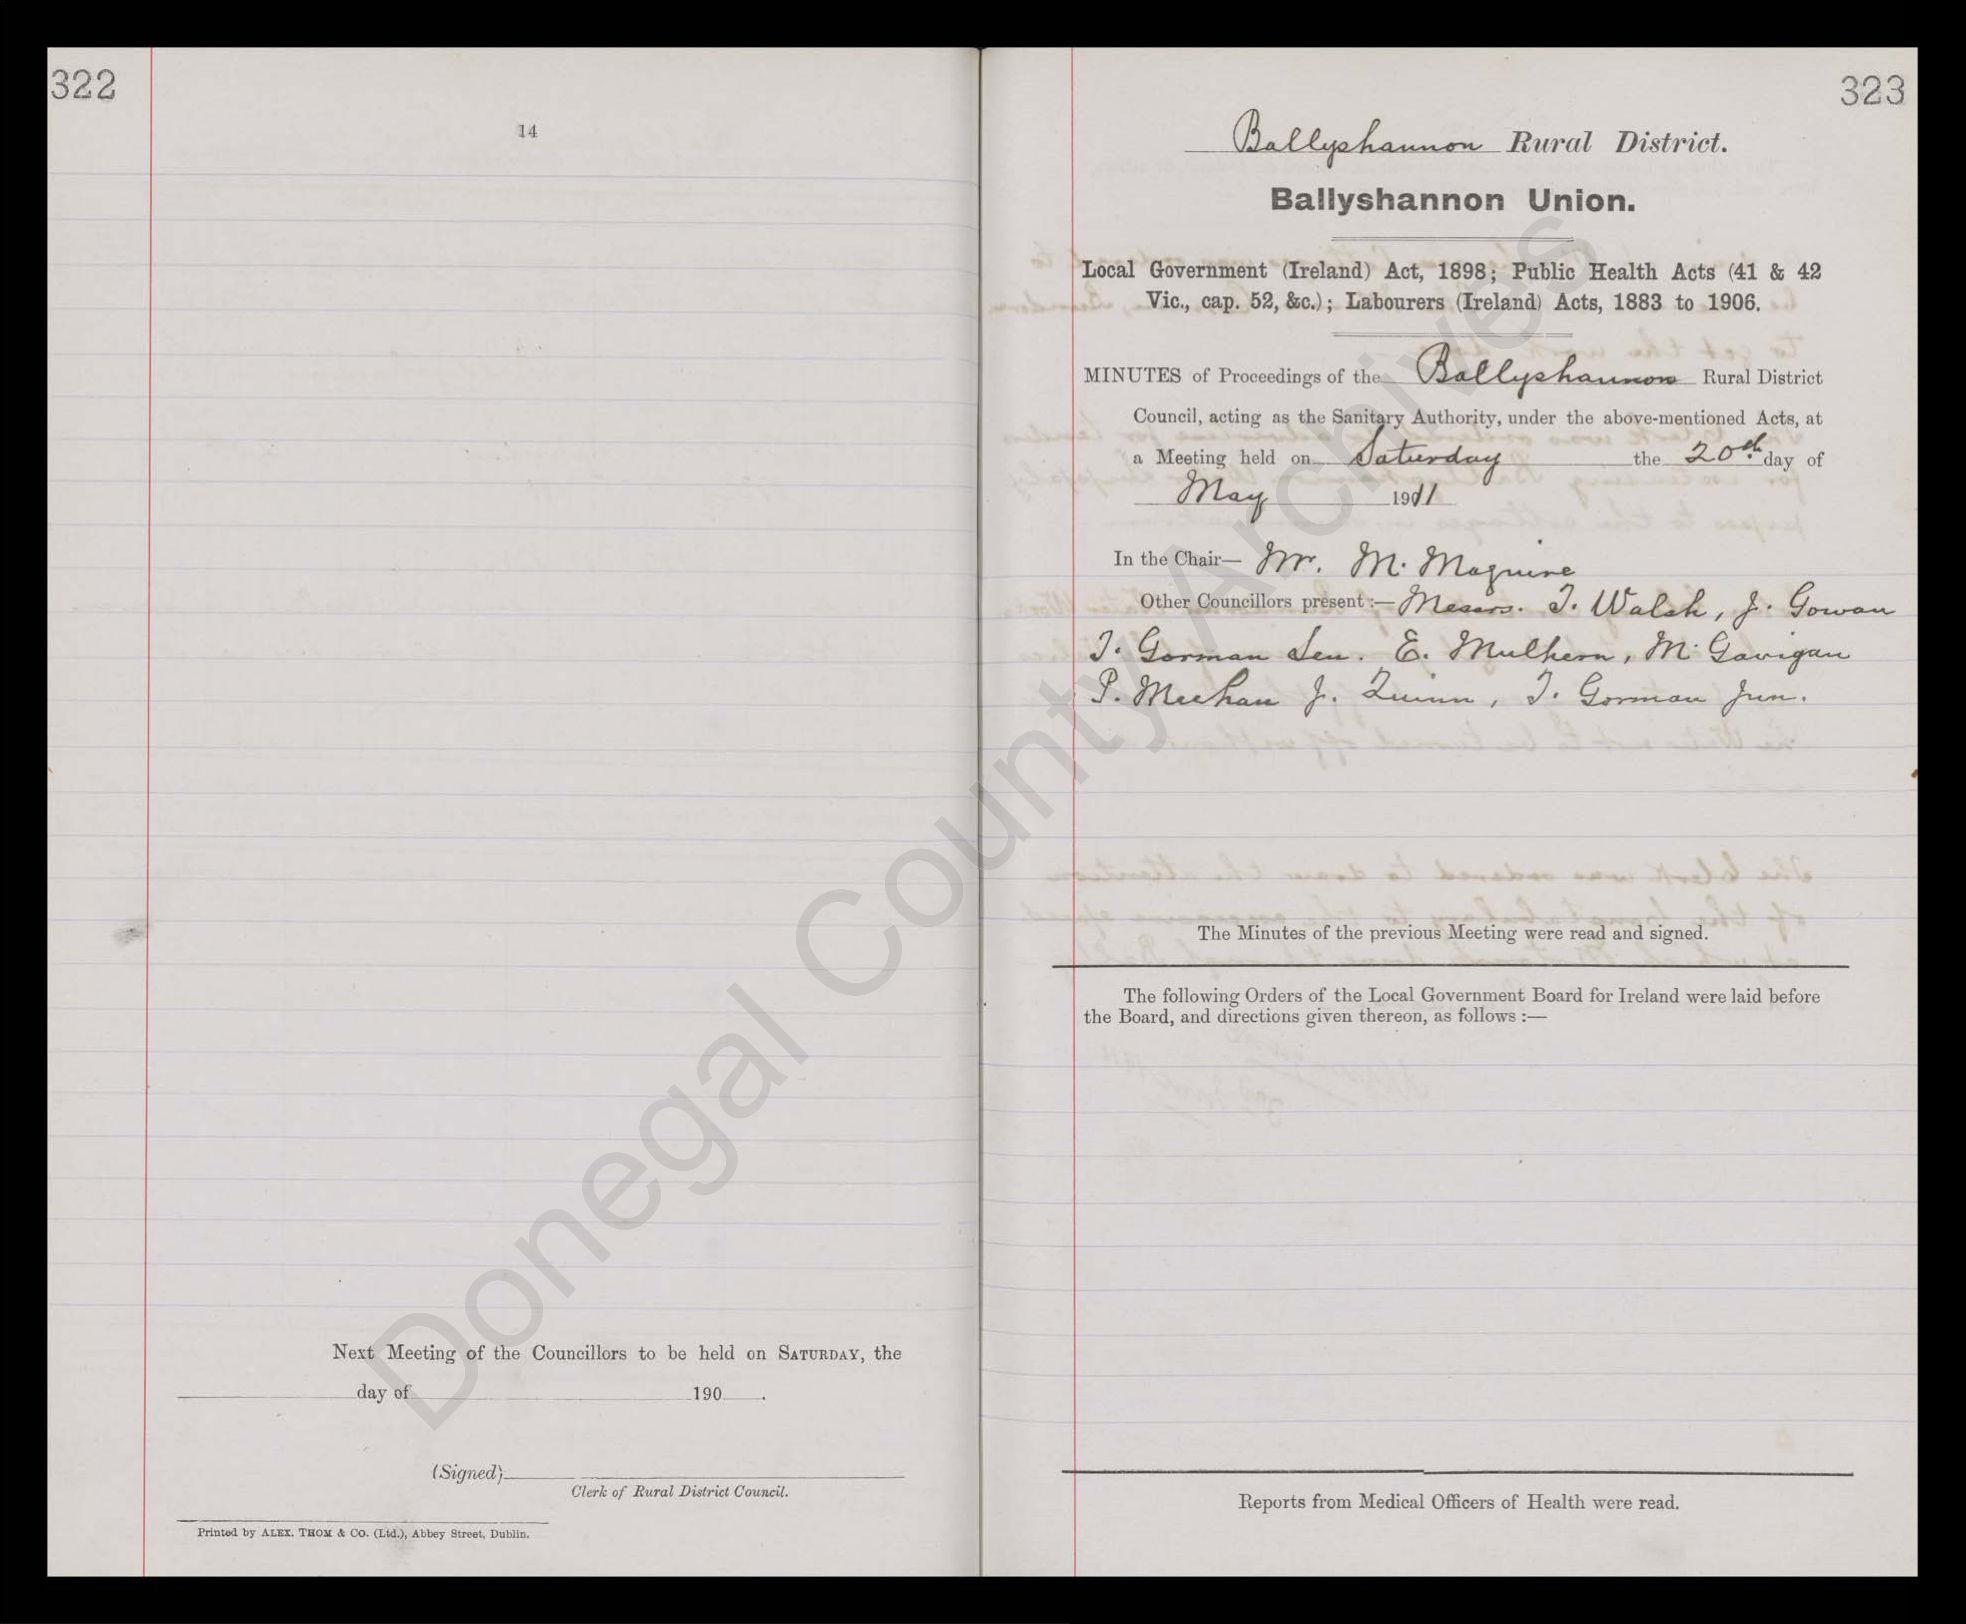 322
14
Next Meeting of the Councillors to be held on SATURDAY, the
day of 190 .
(Signed)
Clerk of Rural District Council.
Printed by ALEX. THOM & Co. (Ltd.), Abbey Street, Dublin.
323
Ballyshannon Rural District.
Ballyshannon Union.
Local Government (Ireland) Act, 1898; Public Health Acts (41 & 42
Vic., cap. 52, &c.); Labourers (Ireland) Acts, 1883 to 1906.
MINUTES of Proceedings of the Ballyshannon Rural District
Council, acting as the Sanitary Authority, under the above-mentioned Acts, at
a Meeting held on Saturday the 20th day of
May 1911
In the Chair— Mr. M. Maguire
Other Councillors present :— Messrs. T. Walsh, J. Gowan
T. Gorman Sen. E. Mulhern, M. Gavigan
P. Meehan J. Quinn, T. Gorman Jun.
The Minutes of the previous Meeting were read and signed.
The following Orders of the Local Government Board for Ireland were laid before
the Board, and directions given thereon, as follows :—
Reports from Medical Officers of Health were read.
Donegal County Archives